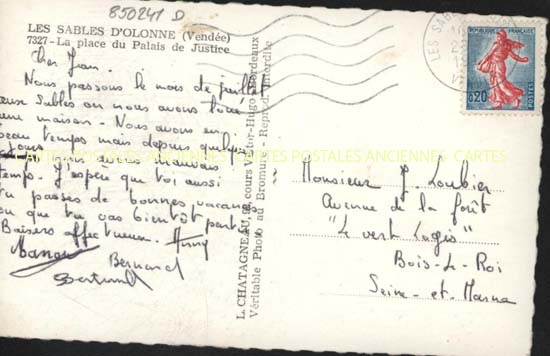 850241 D
LES SABLES D'OLONNE (Vendée)
7327 - La place du Palais de Justice
Cher Jean.
Nous passons le mois de juillet
aux Sables où nous avons loué
une maison - Nous avons eu
beau temps mais depuis quelques
jours nous avons mauvais
temps. J'espère que toi, aussi
tu passes de bonnes vacances
ou que tu vas bientôt partir
Baisers affectueux.
Bernard
Bertrand
L. CHATAGNEAU, cours Victor-Hugo, Bordeaux
Véritable Photo au Bromure - Reprod. interdite
CARTES POSTALES ANCIENNES CARTES POSTALES ANCIENNES CARTES
LES SABLES
REPUBLIQUE FRANÇAISE
0,20
POSTES
Monsieur J. Loubier
Avenue de la forêt
"Le vert Logis"
Bois-Le-Roi
Seine-et-Marne